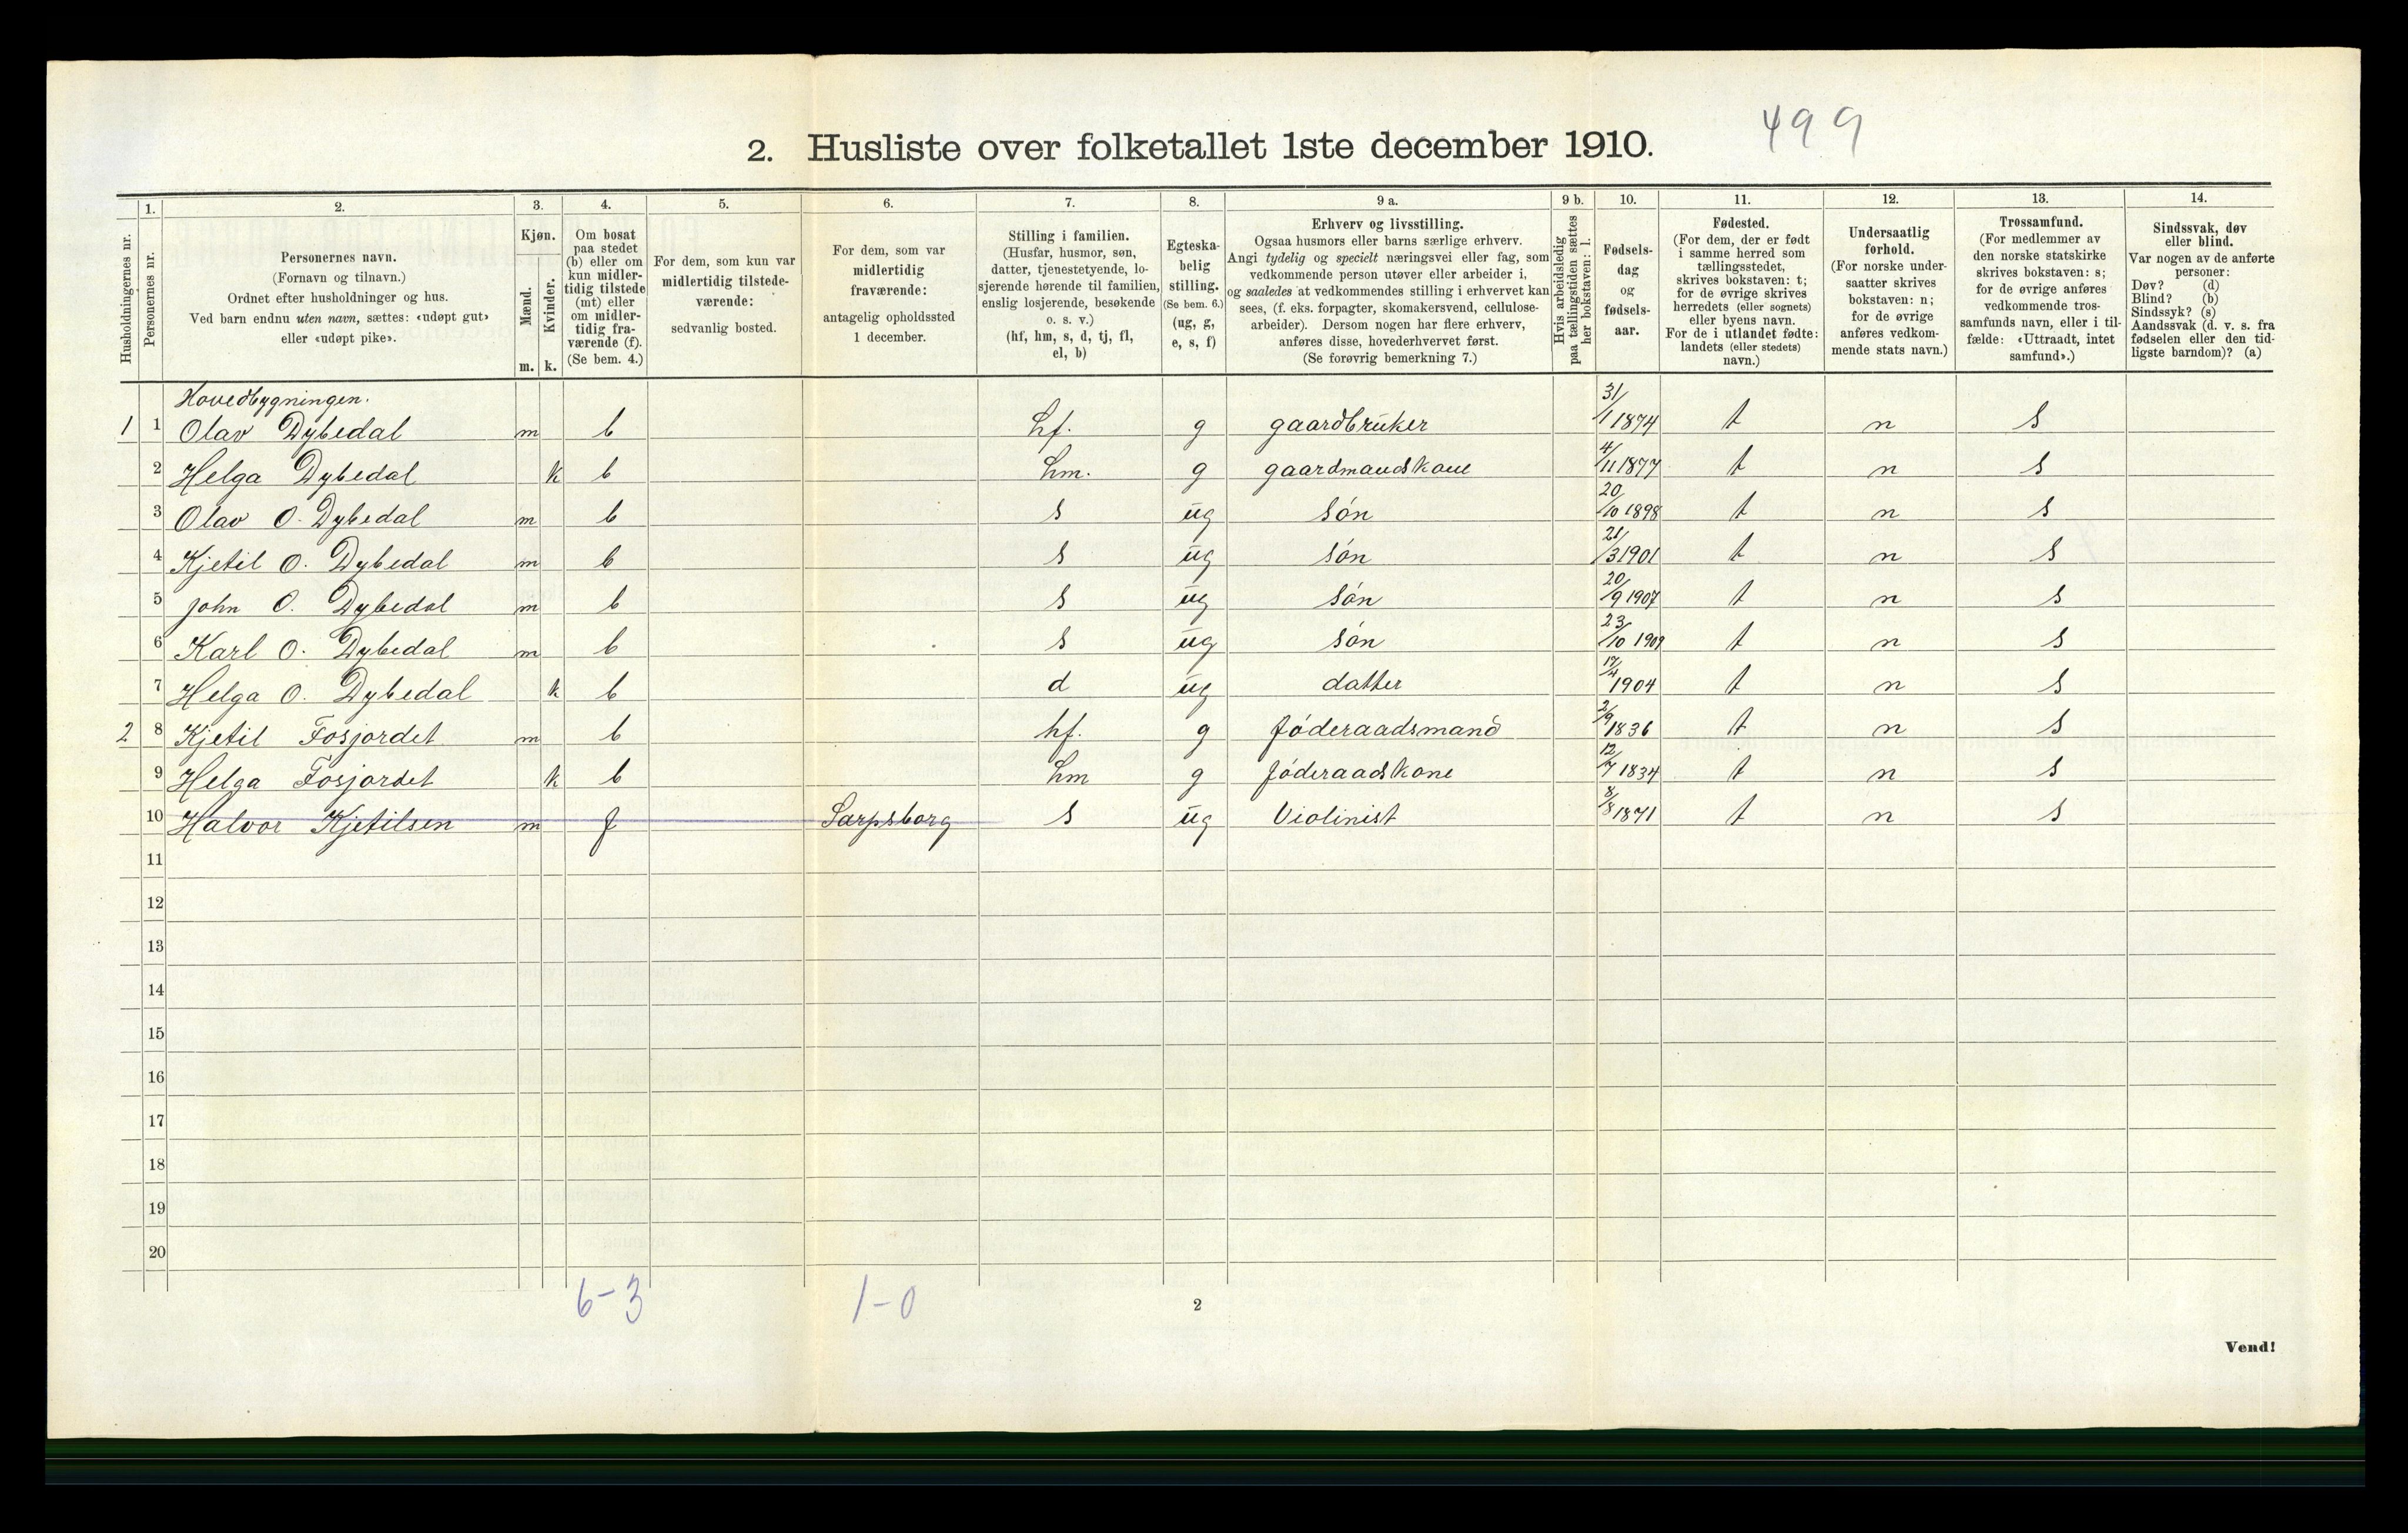 499
2. Husliste over folketallet 1ste december 1910.
Husholdningernes nr.
1.
Personernes nr.
2.
Personernes navn.
(Fornavn og tilnavn.)
Ordnet efter husholdninger og hus.
Ved barn endnu uten navn, sættes: «udøpt gut»
eller «udøpt pike».
3.
Kjøn.
Mænd.
Kvinder.
m. k.
4.
Om bosat
paa stedet
(b) eller om
kun midler-
tidig tilstede
(mt) eller
om midler-
tidig fra-
værende (f).
(Se bem. 4.)
5.
For dem, som kun var
midlertidig tilstede-
værende:
sedvanlig bosted.
6.
For dem, som var
midlertidig
fraværende:
antagelig opholdssted
1 december.
7.
Stilling i familien.
(Husfar, husmor, søn,
datter, tjenestetyende, lo-
sjerende hørende til familien,
enslig losjerende, besøkende
o. s. v.)
(hf, hm, s, d, tj, fl,
el, b)
8.
Egteska-
belig
stilling.
(Se bem. 6.)
(ug, g,
e, s, f)
9 a.
Erhverv og livsstilling.
Ogsaa husmors eller barns særlige erhverv.
Angi tydelig og specielt næringsvei eller fag, som
vedkommende person utøver eller arbeider i,
og saaledes at vedkommendes stilling i erhvervet kan
sees, (f. eks. forpagter, skomakersvend, cellulose-
arbeider). Dersom nogen har flere erhverv,
anføres disse, hovederhvervet først.
(Se forøvrig bemerkning 7.)
9 b.
Hvis arbeidsledig
paa tællingstiden sættes
her bokstaven: l.
10.
Fødsels-
dag
og
fødsels-
aar.
11.
Fødested.
(For dem, der er født
i samme herred som
tællingsstedet,
skrives bokstaven: t;
for de øvrige skrives
herredets (eller sognets)
eller byens navn.
For de i utlandet fødte:
landets (eller stedets)
navn.)
12.
Undersaatlig
forhold.
(For norske under-
saatter skrives
bokstaven: n;
for de øvrige
anføres vedkom-
mende stats navn.)
13.
Trossamfund.
(For medlemmer av
den norske statskirke
skrives bokstaven: s;
for de øvrige anføres
vedkommende tros-
samfunds navn, eller i til-
fælde: «Uttraadt, intet
samfund».)
14.
Sindssvak, døv
eller blind.
Var nogen av de anførte
personer:
Døv? (d)
Blind? (b)
Sindssyk? (s)
Aandssvak (d. v. s. fra
fødselen eller den tid-
ligste barndom)? (a)
Hovedbygningen.
1 1 Olav Dybedal m b hf. g gaardbruker 31/1 1874 t n s
2 Helga Dybedal k b hm. g gaardmandskone 4/11 1877 t n s
3 Olav O. Dybedal m b s ug søn 20/10 1898 t n s
4 Kjetil O. Dybedal m b s ug søn 21/3 1901 t n s
5 John O. Dybedal m b s ug søn 20/9 1907 t n s
6 Karl O. Dybedal m b s ug søn 23/10 1909 t n s
7 Helga O. Dybedal k b d ug datter 17/4 1904 t n s
2 8 Kjetil Fosjordet m b hf. g føderaadsmand 2/9 1836 t n s
9 Helga Fosjordet k b hm g føderaadskone 12/7 1834 t n s
10 Halvor Kjetilsen m f Sarpsborg s ug Violinist 8/8 1871 t n s
11
12
13
14
15
16
17
18
19
20
6-3 1-0
2
Vend!